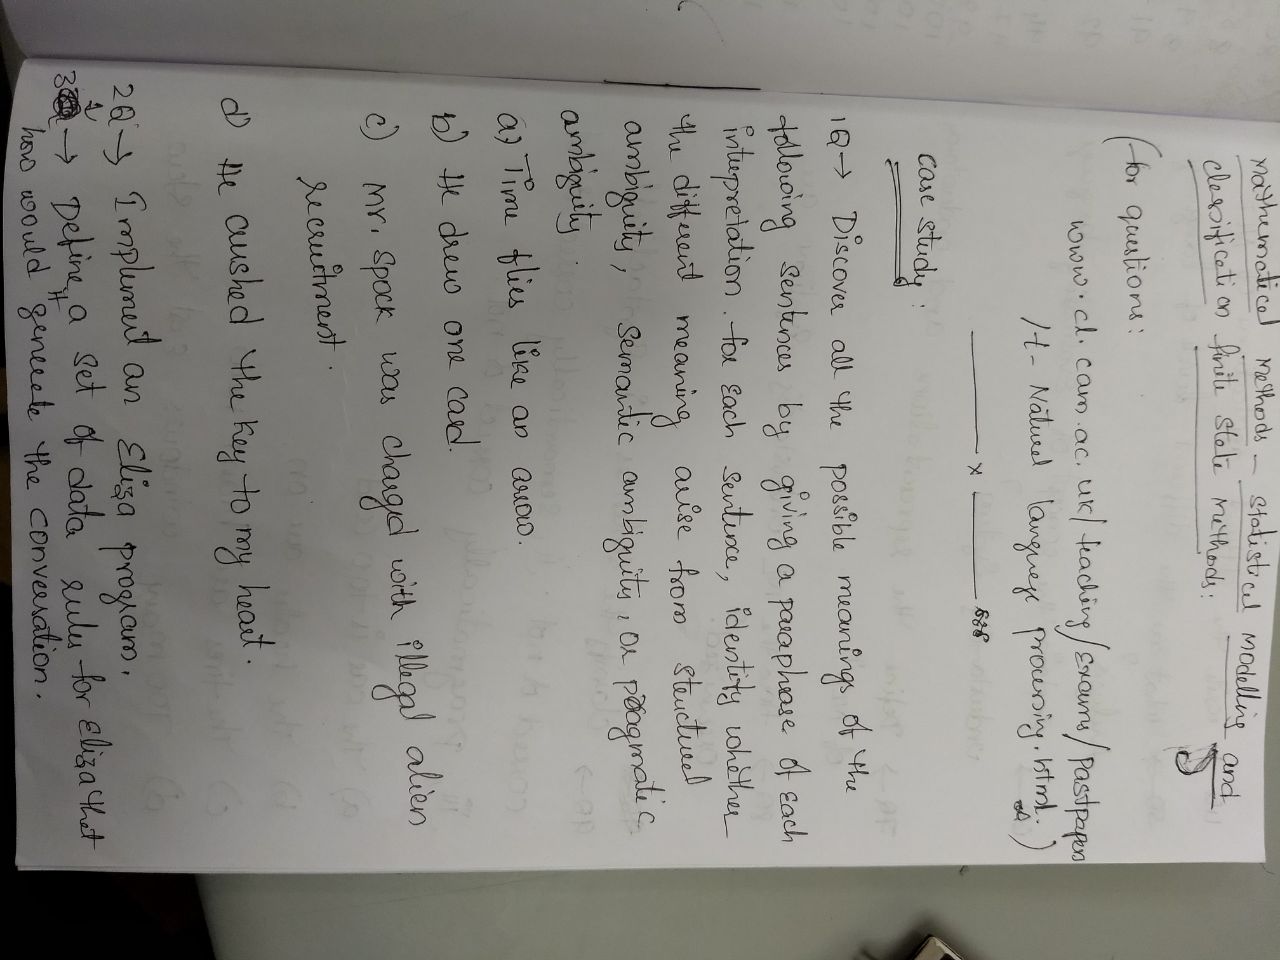 Mathematical Methods - Statistical Modelling and
classification finite state Methods:
(for questions:
www.cl.cam.ac.uk/teaching/Exams/pastpapers
/t-Natural language processing.html.)
x
case study:
1Q→ Discover all the possible meanings of the
following sentences by giving a paraphrase of each
intrepretation. for each sentence, identify whether
the different meaning arise from structural
ambiguity, semantic ambiguity, or pragmatic
ambiguity.
a) Time flies like an arrow.
b) He drew one card.
c) Mr. Spock was charged with illegal alien
recruitment.
d) He crushed the key to my heart.
2Q→ Implement an Eliza program.
3 → Define a set of data rules for Eliza that
how would it generate the conversation.